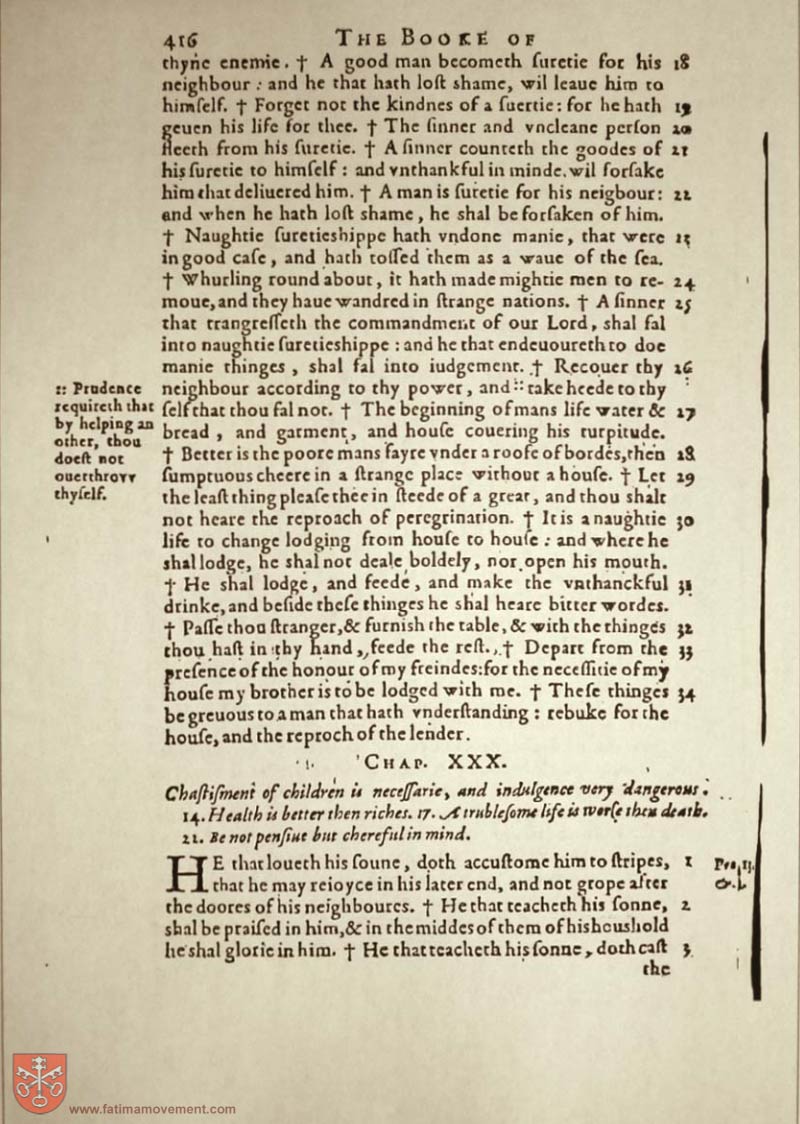 416 THE BOOKE OF
thyne enemie. † A good man becometh ſuretie for his 18
neighbour: and he that hath loſt shame, wil leaue him to
himſelf. † Forget not the kindnes of a ſuertie: for he hath 19
geuen his life for thee. † The ſinner and vncleane perſon 20
fleeth from his ſuretie. † A ſinner counteth the goodes of 21
his ſuretie to himſelf: and vnthankful in minde, wil forſake
him that deliuered him. † A man is ſuretie for his neigbour: 22
and when he hath loſt shame, he shal be forſaken of him.
† Naughtie ſuretieshippe hath vndone manie, that were 23
in good caſe, and hath toſſed them as a waue of the ſea.
† Whurling round about, it hath made mightie men to re- 24
moue, and they haue wandred in ſtrange nations. † A ſinner 25
that trangreſſeth the commandment of our Lord, shal fal
into naughtie ſuretieshippe: and he that endeuoureth to doe
manie thinges, shal fal into iudgement. † Recouer thy 26
neighbour according to thy power, and :: take heede to thy
ſelf that thou fal not. † The beginning of mans life water & 27
bread, and garment, and houſe couering his turpitude.
† Better is the poore mans fayre vnder a roofe of bordes, then 28
ſumptuous cheere in a ſtrange place without a houſe. † Let 29
the leaſt thing pleaſe thee in ſteede of a great, and thou shalt
not heare the reproach of peregrination. † It is a naughtie 30
life to change lodging from houſe to houſe: and where he
shal lodge, he shal not deale boldely, nor open his mouth.
† He shal lodge, and feede, and make the vnthanckful 31
drinke, and beſide theſe thinges he shal heare bitter wordes.
† Paſſe thou ſtranger, & furnish the table, & with the thinges 32
thou haſt in thy hand, feede the reſt. † Depart from the 33
preſence of the honour of my freindes: for the neceſſitie of my
houſe my brother is to be lodged with me. † Theſe thinges 34
be greuous to a man that hath vnderſtanding: rebuke for the
houſe, and the reproch of the lender.
:: Prudence
requireth that
by helping an
other, thou
doeſt not
ouerthrovv
thyſelf.
CHAP. XXX.
Chaſtiſment of children is neceſſarie, and indulgence very dangerous.
14. Health is better then riches. 17. A trubleſome life is worſe then death.
21. Be not penſiue but chereful in mind.
HE that loueth his ſonne, doth accuſtome him to ſtripes, 1
that he may reioyce in his later end, and not grope after
the doores of his neighboures. † He that teacheth his ſonne, 2
shal be praiſed in him, & in the middes of them of his houshold
he shal glorie in him. † He that teacheth his ſonne, doth caſt 3
the
www.fatimamovement.com